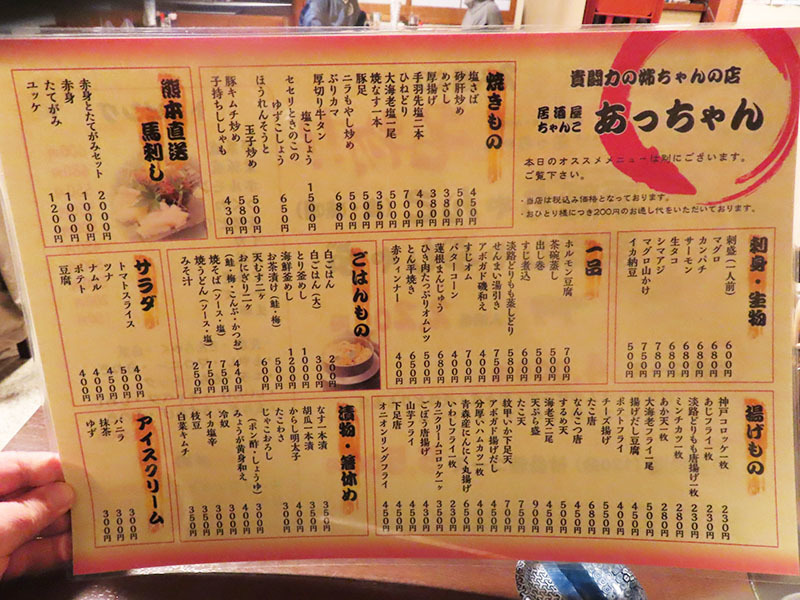 貴闘力の姉ちゃんの店
居酒屋
ちゃんこ
あっちゃん
本日のオススメメニューは別にございます。
ご覧下さい。
・当店は税込み価格となっております。
・おひとり様につき200円のお通し代をいただいております。
焼きもの
塩さば 450円
砂肝炒め 500円
めざし 380円
厚揚げ 380円
手羽先塩二本 400円
ひねどり 700円
大海老塩一尾 500円
焼なす一本 350円
豚足 500円
ニラもやし炒め 500円
ぶりカマ 680円
厚切り牛タン 1500円
セセリときのこの
塩こしょう
ゆずこしょう 650円
ほうれんそうと
玉子炒め 500円
豚キムチ炒め 580円
子持ちししゃも 430円
熊本直送
馬刺し
赤身とたてがみセット 2000円
赤身 1000円
たてがみ 1000円
ユッケ 1200円
刺身・生物
刺盛(一人前) 600円
マグロ 680円
カンパチ 680円
サーモン 680円
生タコ 680円
シマアジ 780円
マグロ山かけ 750円
イカ納豆 500円
一品
ホルモン豆腐 700円
茶碗蒸し 500円
出し巻 500円
すじ煮込 600円
淡路どりもも蒸しどり 580円
せんまい湯引き 750円
アボガド磯和え 400円
すじオム 700円
バターコーン 400円
蓮根まんじゅう 480円
ひき肉たっぷりオムレツ 500円
とん平焼き 650円
赤ウィンナー 400円
ごはんもの
白ごはん 200円
白ごはん(大) 300円
とり釜めし 1000円
海鮮釜めし 1200円
お茶漬け(鮭・梅) 500円
天むす二ヶ 600円
おにぎり二ヶ
(鮭・梅・こんぶ・かつお) 440円
焼そば(ソース・塩) 750円
焼うどん(ソース・塩) 750円
みそ汁 250円
サラダ
トマトスライス 400円
ツナ 500円
ナムル 450円
ポテト 400円
豆腐 400円
揚げもの
神戸コロッケ一枚 230円
あじフライ一枚 230円
淡路どりもも唐揚げ一枚
ミンチカツ一枚 280円
あか天一枚
大海老フライ二尾
揚げだし豆腐
ポテトフライ
チーズ揚げ
たこ唐
なんこつ唐
するめ天
海老天二尾
天ぷら盛 900円
たこ天 750円
紋甲いか下足天 700円
アボガド揚げだし
分厚いハムカツ一枚
青森産にんにく丸揚げ
いわしフライ一枚
カニクリームコロッケ一ヶ
ごぼう唐揚げ
山芋フライ
下足唐 450円
オニオンリングフライ 450円
漬物・箸休め
なす一本漬 350円
胡瓜一本漬 300円
からし明太子 400円
たこわさ 300円
じゃこおろし
(ポン酢・しょうゆ) 300円
みょうが黄身和え 400円
冷奴 300円
イカ塩辛 300円
枝豆
白菜キムチ 350円
アイスクリーム
バニラ 300円
抹茶 300円
ゆず 300円